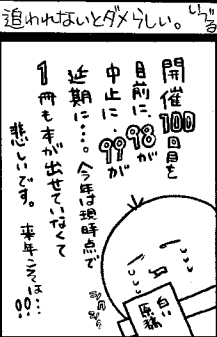 追われないとダメらしい。
いづる
開催100回目を
目前に、98が
中止に、99が
延期に…。今年は現時点で
1冊も本が出せていなくて
悲しいです。来年こそは…!!
白い
原稿